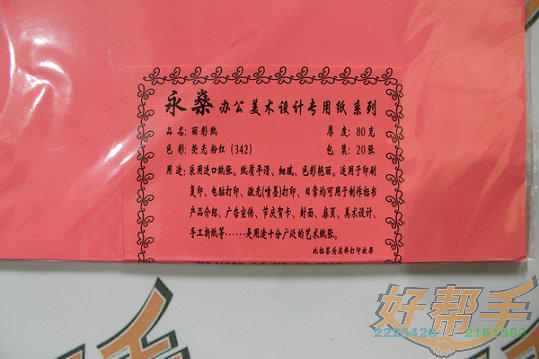 永燊办公美术设计专用纸系列
品名：丽彩纸 厚度：80克
色彩：荧光粉红（342） 包装：20张
用途：采用进口纸张。纸质平滑、细腻、色彩艳丽。适用于印刷
复印、电脑打印、激光(喷墨)打印、日常均可用于制作标书
产品介绍、广告宣传、节庆贺卡、封面、扉页、美术设计、
手工折纸等……是用途十分广泛的艺术纸张。
此标签为实样打印效果
好帮手
2225426 2161563